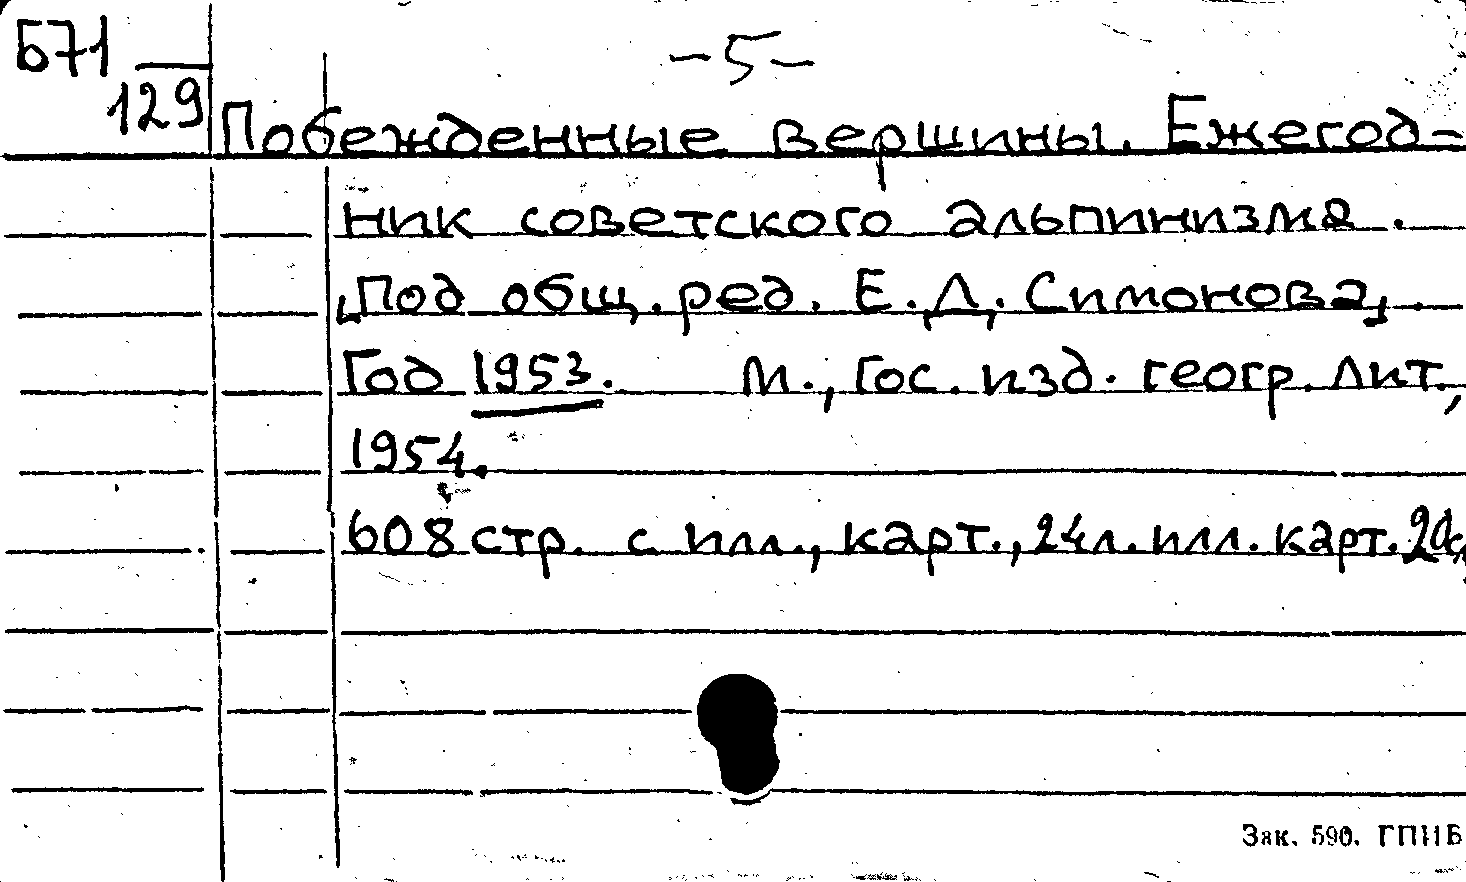 Б71
129
-5-
Побежденные вершины. Ежегод-
ник советского альпинизма.
Под общ. ред. Е.Д. Симонова,
Год 1953. М., Гос. изд. геогр. лит.,
1954.
608 стр. с илл., карт., 24 л. илл. карт. 20см
Зак. 590. ГПНБ